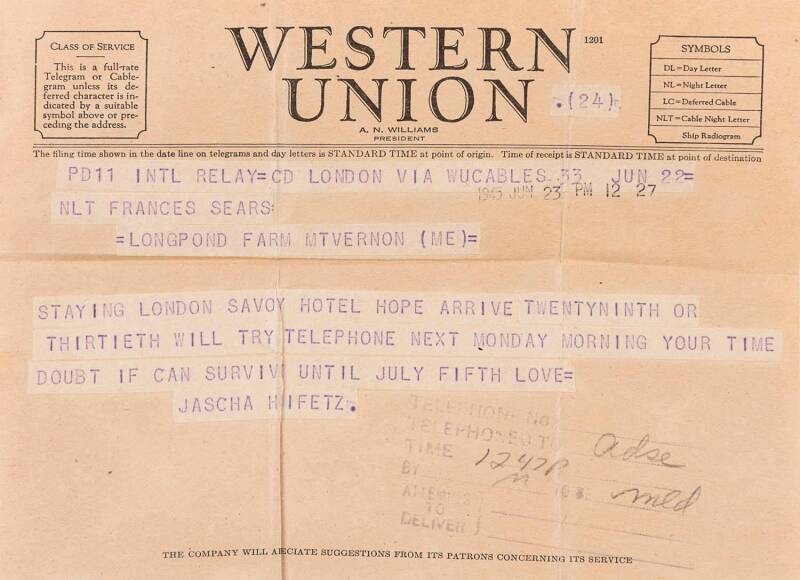 CLASS OF SERVICE
This is a full-rate
Telegram or Cable-
gram unless its de-
ferred character is in-
dicated by a suitable
symbol above or pre-
ceding the address.
WESTERN
UNION
1201
.(24).
A. N. WILLIAMS
PRESIDENT
SYMBOLS
DL=Day Letter
NL=Night Letter
LC=Deferred Cable
NLT=Cable Night Letter
Ship Radiogram
The filing time shown in the date line on telegrams and day letters is STANDARD TIME at point of origin. Time of receipt is STANDARD TIME at point of destination
PD11 INTL RELAY=CD LONDON VIA WUCABLES 33 JUN 22=
JUN 23 PM 12 27
NLT FRANCES SEARS
=LONGPOND FARM MTVERNON (ME)=
STAYING LONDON SAVOY HOTEL HOPE ARRIVE TWENTYNINTH OR
THIRTIETH WILL TRY TELEPHONE NEXT MONDAY MORNING YOUR TIME
DOUBT IF CAN SURVIV UNTIL JULY FIFTH LOVE=
JASCHA HIFETZ.
TELEPHONE NO
TELEPHONED T
TIME 1247P
BY
ATTEMPTS
TO
DELIVER
THE COMPANY WILL AECIATE SUGGESTIONS FROM ITS PATRONS CONCERNING ITS SERVICE